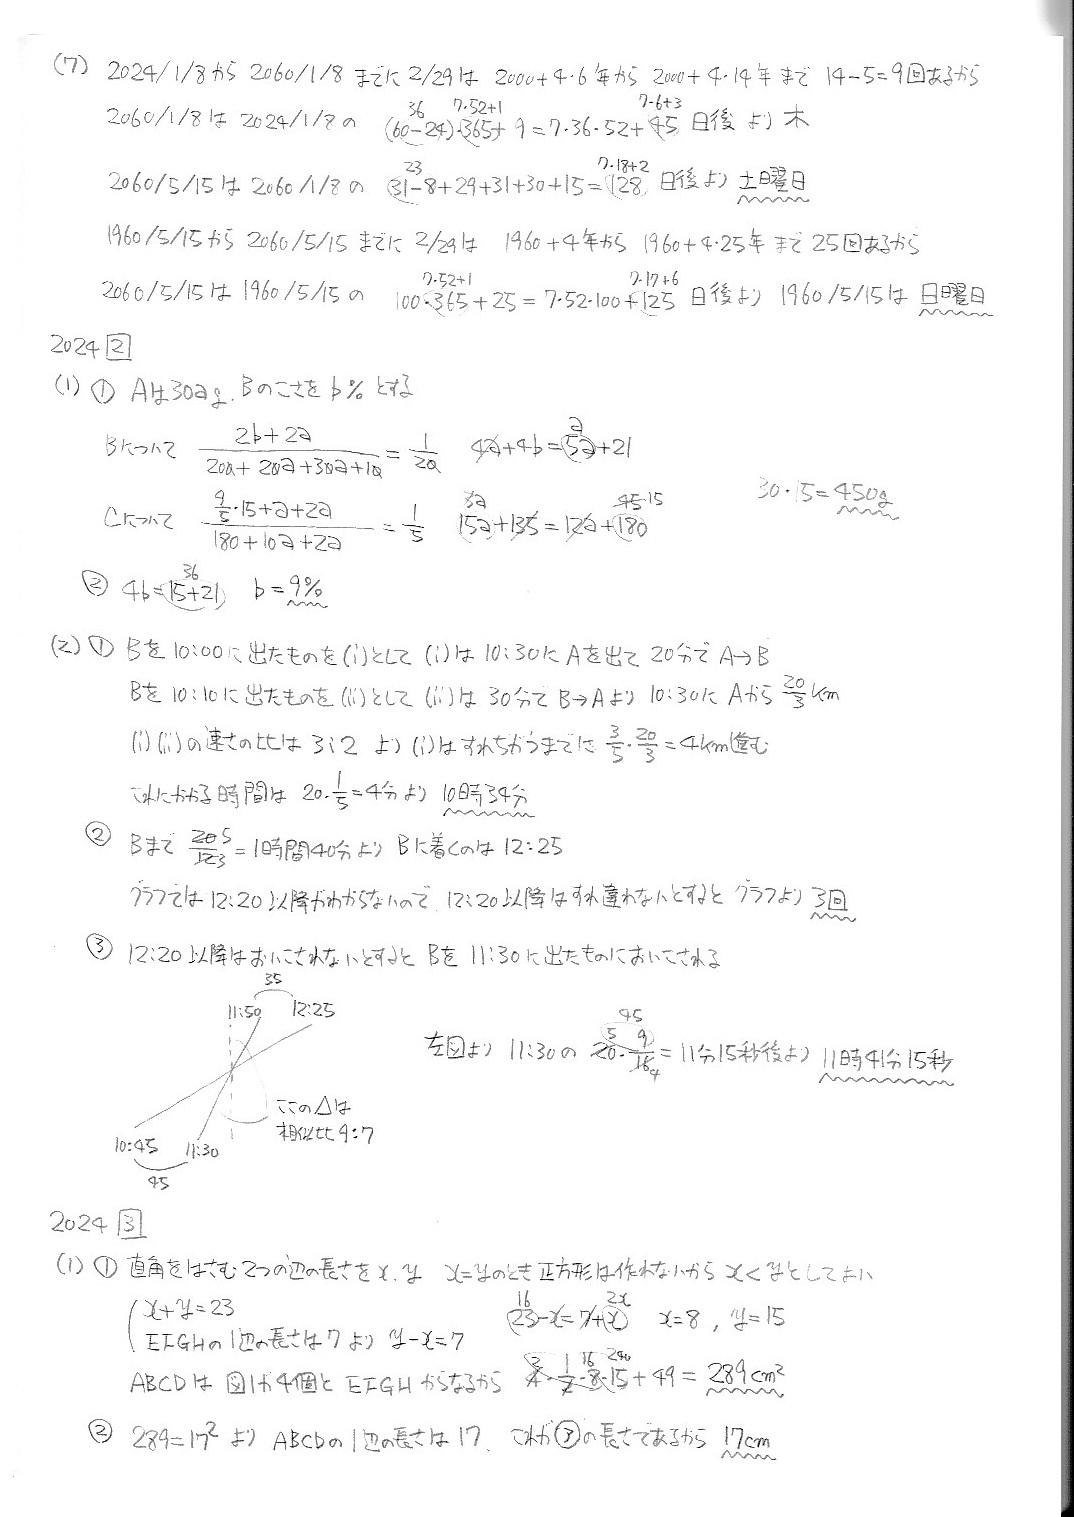 (7) 2024/1/8から 2060/1/8 までに 2/29は 2000+4・6年から 2000+4・14年まで 14-5=9回あるから
36 7・52+1 7・6+3
2060/1/8は 2024/1/8の (60-24)・365+9=7・36・52+45 日後より 木
23 7・18+2
2060/5/15は 2060/1/8の 31-8+29+31+30+15=128 日後より 土曜日
1960/5/15から 2060/5/15 までに 2/29は 1960+4年から 1960+4・25年まで 25回あるから
7・52+1 7・17+6
2060/5/15は 1960/5/15の 100・365+25=7・52・100+125 日後より 1960/5/15は 日曜日
2024 2
(1) ① Aは30a g、Bのこさを b% とする
Bについて (2b+2a)/(200+200+300+10)=1/20 4a+4b=5a+21
30・15=450g
Cについて (9/5・15+a+2a)/(180+10a+2a)=1/5 15a+135=12a+180
3a 45 15
② 4b=15+21 b=9%
36
(2) ① Bを10:00に出たものを(i)として (i)は 10:30に Aを出て 20分で A→B
Bを 10:10に出たものを(ii)として (ii)は 30分で B→Aより 10:30に Aから 20/3 km
(i)(ii)の速さの比は 3:2 より (i)はすれちがうまでに 3/5・20/3=4km進む
これにかかる時間は 20・1/5=4分より 10時34分
② Bまで 20 5/12 3=1時間40分より Bに着くのは 12:25
グラフでは12:20以降がわからないので 12:20以降はすれ違わないとすると グラフより 3回
③ 12:20以降はおいこされないとすると Bを 11:30に出たものにおいこされる
35
11:50 12:25
45
左図より 11:30の 20・9/16=11分15秒後より 11時41分15秒
5 4
ここの△は
相似比9:7
10:45 11:30
45
2024 3
(1) ① 直角をはさむ2つの辺の長さをx、y x=yのとき正方形は作れないからx<yとしてよい
x+y=23
16 2x
23-x=7+x x=8, y=15
EFGHの1辺の長さは7より y-x=7
ABCDは 図1が4個と EFGHからなるから 4・1/2・8・15+49=289cm²
② 289=17²より ABCDの1辺の長さは17、これが③の長さであるから 17cm